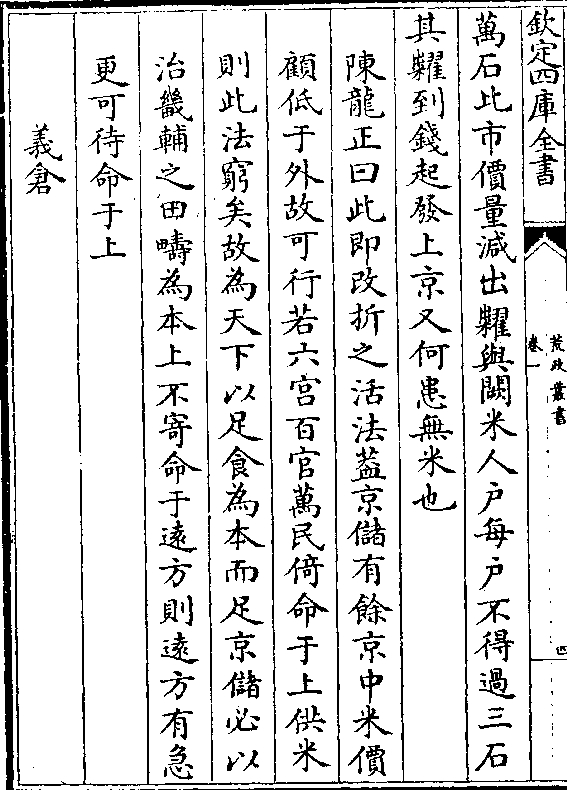 欽定四庫全書
荒政叢書
卷一
四
萬石比市價量減出糶與闕米人户每户不得過三石
其糶到錢起發上京又何患無米也
陳龍正曰此即改折之活法葢京儲有餘京中米價
顧低于外故可行若六宫百官萬民倚命于上供米
則此法窮矣故為天下以足食為本而足京儲必以
治畿輔之田疇為本上不寄命于逺方則逺方有急
更可待命于上
義倉